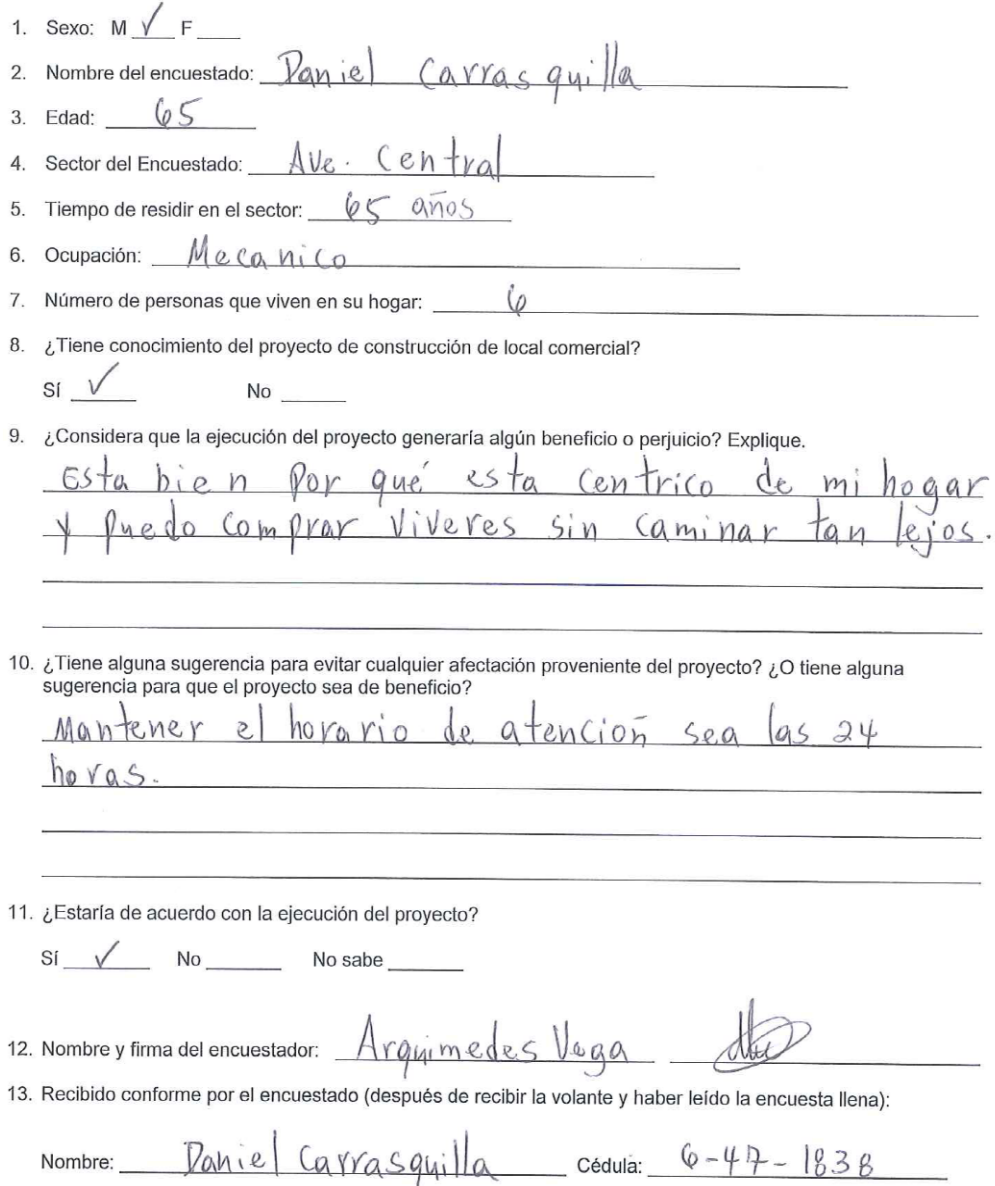 1. Sexo: M √ F
2. Nombre del encuestado: Daniel Carrasquilla
3. Edad: 65
4. Sector del Encuestado: Ave. Central
5. Tiempo de residir en el sector: 65 años
6. Ocupación: Mecanico
7. Número de personas que viven en su hogar: 6
8. ¿Tiene conocimiento del proyecto de construcción de local comercial?
Sí √ No
9. ¿Considera que la ejecución del proyecto generaría algún beneficio o perjuicio? Explique.
Esta bien por qué esta centrico de mi hogar
y puedo comprar viveres sin caminar tan lejos.
10. ¿Tiene alguna sugerencia para evitar cualquier afectación proveniente del proyecto? ¿O tiene alguna
sugerencia para que el proyecto sea de beneficio?
Mantener el horario de atención sea las 24
horas.
11. ¿Estaría de acuerdo con la ejecución del proyecto?
Sí √ No No sabe
12. Nombre y firma del encuestador: Arquimedes Vega
13. Recibido conforme por el encuestado (después de recibir la volante y haber leído la encuesta llena):
Nombre: Daniel Carrasquilla Cédula: 6-47-1838